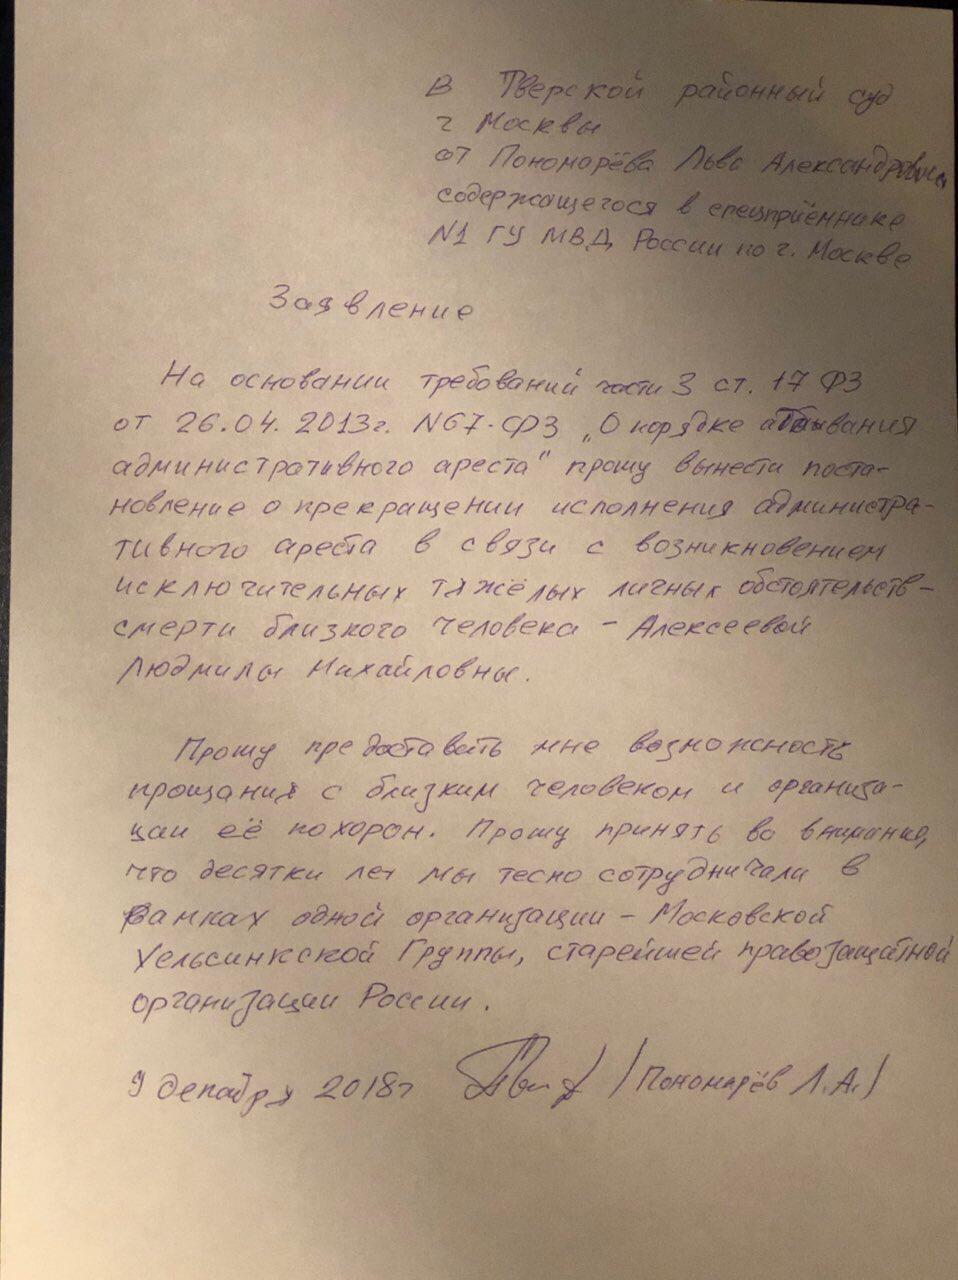 В Тверской районный суд
г Москвы
от Пономарёва Льва Александровича
содержащегося в спецприёмнике
N1 ГУ МВД России по г. Москве
Заявление
На основании требований части 3 ст. 17 ФЗ
от 26.04.2013г. N67-ФЗ „О порядке отбывания
административного ареста" прошу вынести поста-
новление о прекращении исполнения администра-
тивного ареста в связи с возникновением
исключительных тяжёлых личных обстоятельств -
смерти близкого человека - Алексеевой
Людмилы Михайловны.
Прошу предоставить мне возможность
прощания с близким человеком и организа-
ции её похорон. Прошу принять во внимание,
что десятки лет мы тесно сотрудничали в
рамках одной организации - Московской
Хельсинкской Группы, старейшей правозащитной
организации России.
9 декабря 2018г /Пономарёв Л.А./